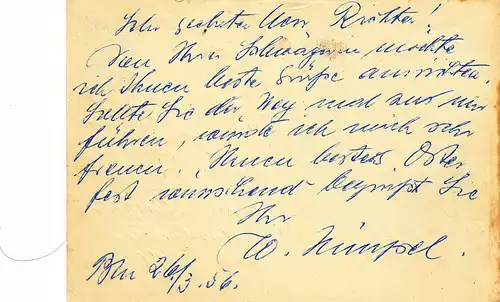 Sehr geehrter Herr Richter!
Von Ihrer Schwägerin möchte
ich Ihnen beste Grüße ausrichten.
Sollte Sie der Weg mal zu mir
führen, würde ich mich sehr
freuen. Ihnen bestes Oster
fest wünschend begrüßt Sie
Ihr
W. Hümpel.
Bln 26/3.56.